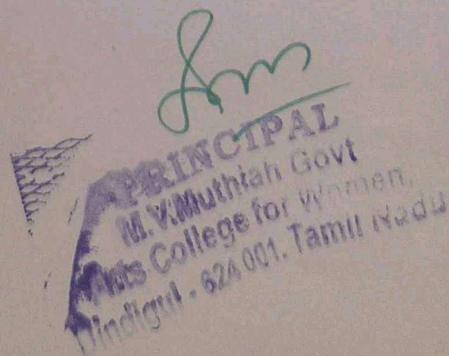 PRINCIPAL
M.V.Muthiah Govt
Arts College for Women,
Dindigul - 624 001. Tamil Nadu